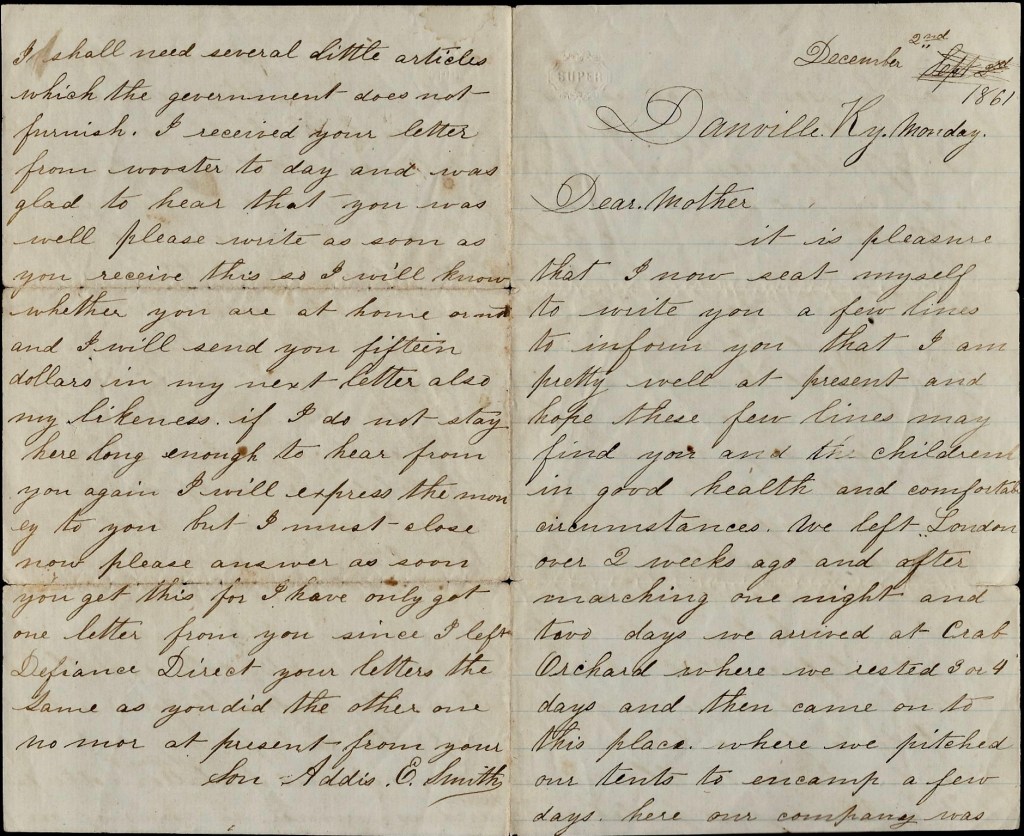 SUPER
December 2nd Sept 2nd
1861
Danville. Ky. Monday.
Dear. Mother
it is pleasure
that I now seat myself
to write you a few lines
to inform you that I am
pretty well at present and
hope these few lines may
find you and the children
in good health and comfortab
circumstances. We left London
over 2 weeks ago and after
marching one night and
two days we arrived at Crab
Orchard where we rested 3 or 4
days and then came on to
this place. where we pitched
our tents to encamp a few
days. here our company was
I shall need several little articles
which the government does not
furnish. I received your letter
from wooster to day and was
glad to hear that you was
well please write as soon as
you receive this so I will know
whether you are at home or not
and I will send you fifteen
dollars in my next letter also
my likeness. if I do not stay
here long enough to hear from
you again I will express the mon
ey to you but I must close
now please answer as soon
you get this for I have only got
one letter from you since I left
Defiance Direct your letters the
same as you did the other one
no mor at present from your
Son Addis. E. Smith